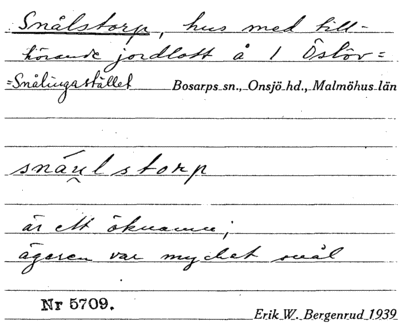 Snålstorp, hus med till-
hörande jordlott å 1 Östöv=
=Snålingastället Bosarps sn., Onsjö hd., Malmöhus län
snáu̯lstorp
är ett öknamn;
ägaren var mycket snål
Nr 5709.
Erik W. Bergenrud 1939